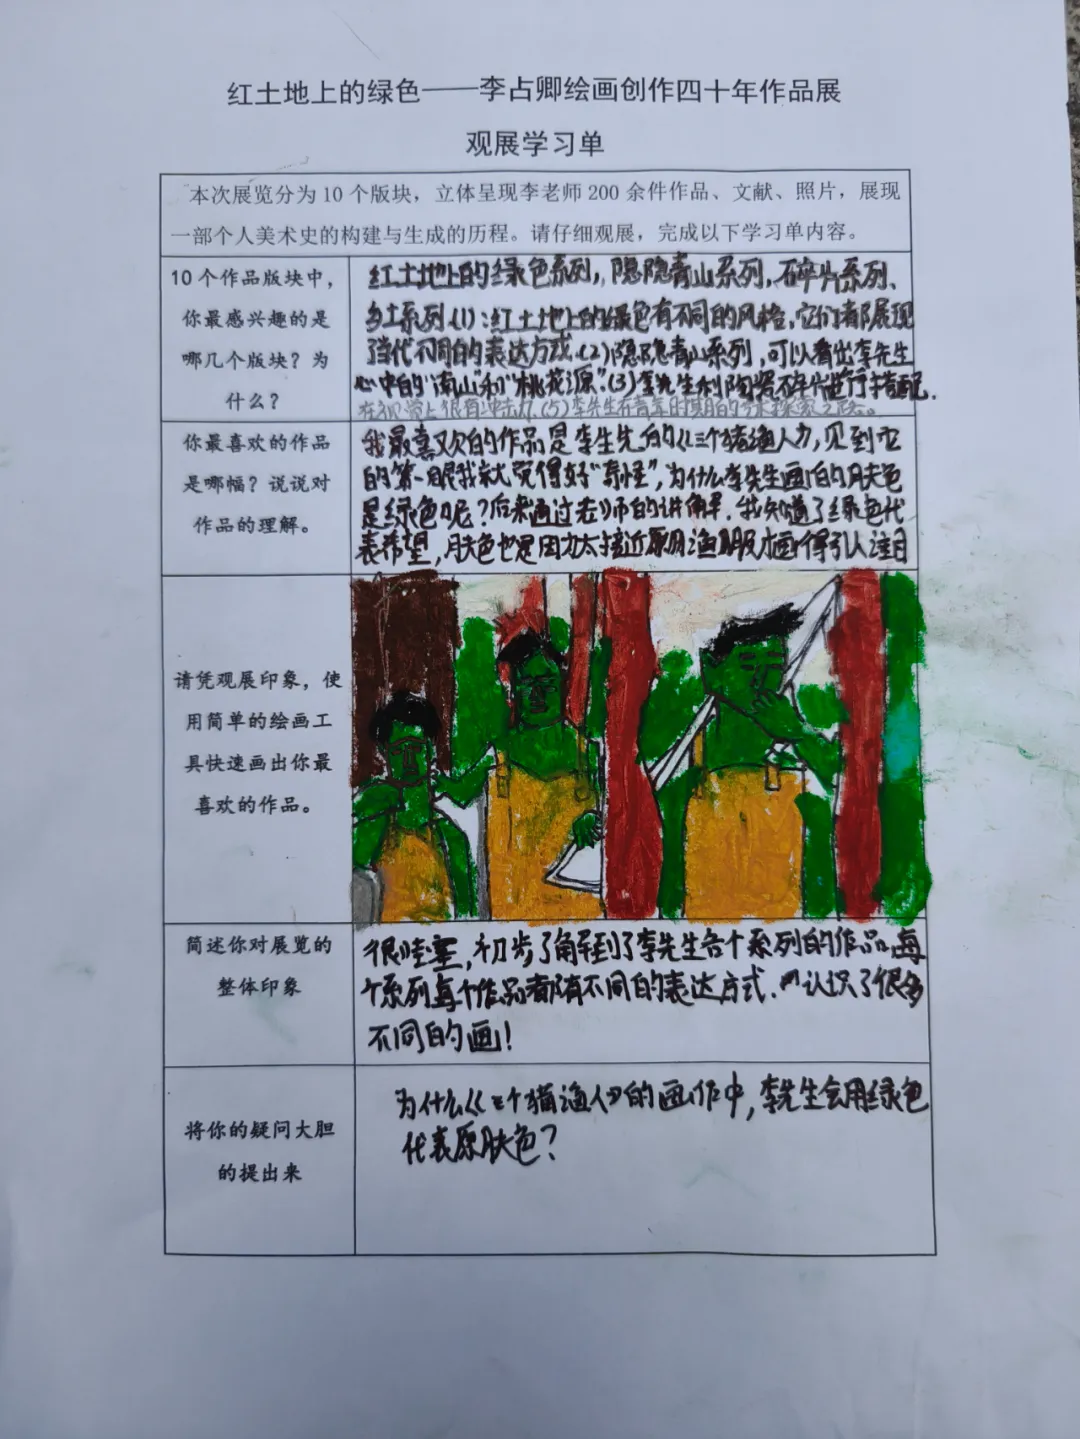 红土地上的绿色——李占卿绘画创作四十年作品展
观展学习单
本次展览分为10个版块，立体呈现李老师200余件作品、文献、照片，展现
一部个人美术史的构建与生成的历程。请仔细观展，完成以下学习单内容。
10个作品版块中，
你最感兴趣的是
哪几个版块？为
什么？
红土地上的绿色系列，隐隐青山系列，碎片系列、
乡土系列.(1):红土地上的绿色有不同的风格，它们都展现
当代不同的表达方式.(2)隐隐青山系列，可以看出李先生
心中的“南山”和“桃花源”.(3)李先生利陶瓷碎片进行描画.
在视觉上很有冲击力.(5)李先生在青年时期的艺术探索之路。
你最喜欢的作品
是哪幅？说说对
作品的理解。
我最喜欢的作品是李生先的《三个猪渔人》，见到它
的第一眼我就觉得好“奇怪”，为什么李先生画的肤色
是绿色呢？后来通过老师的讲解，我知道了绿色代
表希望，肤色也是因为太接近原渔服才画得引人注目
请凭观展印象，使
用简单的绘画工
具快速画出你最
喜欢的作品。
简述你对展览的
整体印象
很哇塞，初步了解到了李先生各个系列的作品每
个系列每个作品都有不同的表达方式.认识了很多
不同的画！
将你的疑问大胆
的提出来
为什么《三个猫渔人》的画作中，李先生会用绿色
代表原肤色？